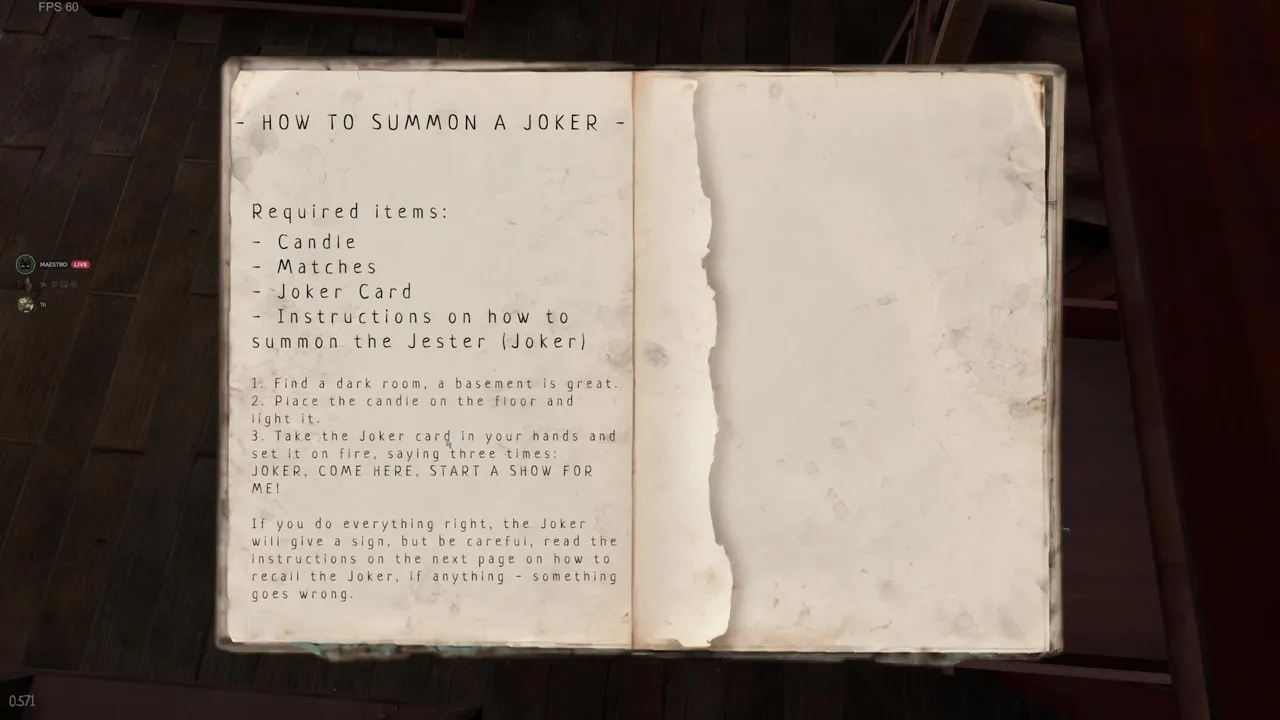 FPS 60
- HOW TO SUMMON A JOKER -
Required items:
- Candle
- Matches
- Joker Card
- Instructions on how to
summon the Jester (Joker)
1. Find a dark room, a basement is great.
2. Place the candle on the floor and
light it.
3. Take the Joker card in your hands and
set it on fire, saying three times:
JOKER, COME HERE, START A SHOW FOR
ME!
If you do everything right, the Joker
will give a sign, but be careful, read the
instructions on the next page on how to
recall the Joker, if anything - something
goes wrong.
MAESTRO LIVE
0.571